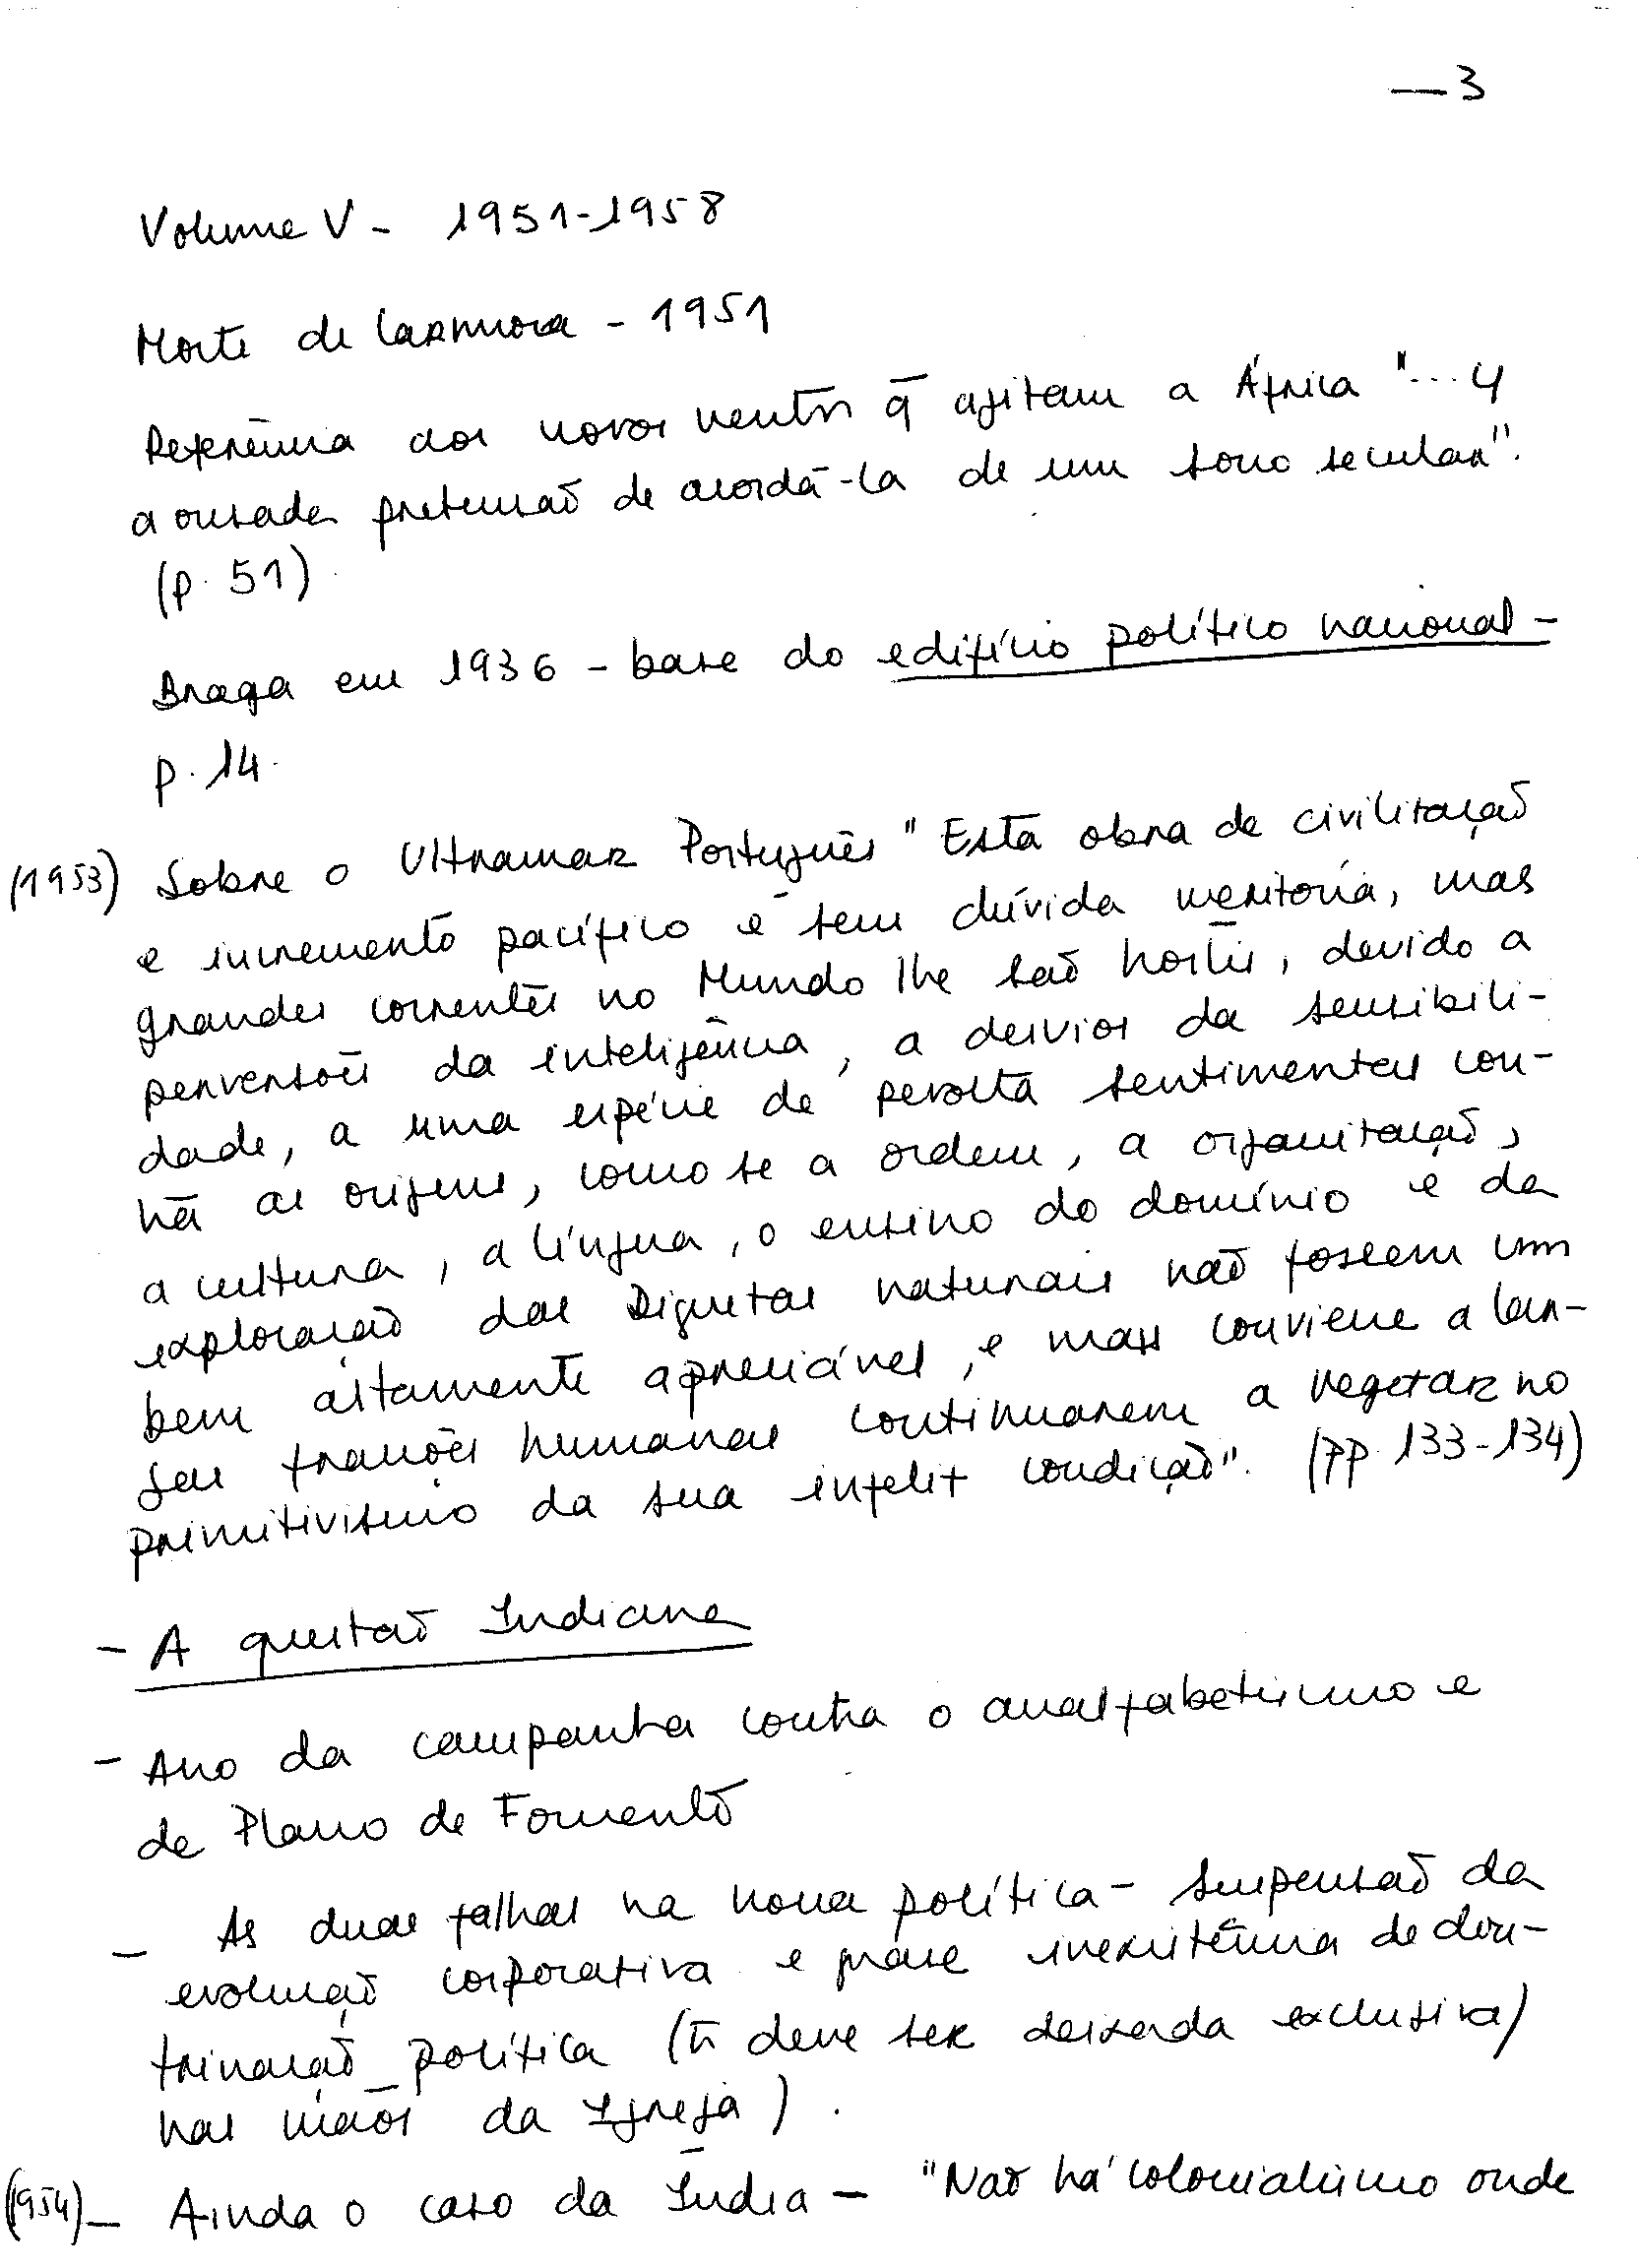 — 3
Volume V - 1951-1958
Morte de Carmona - 1951
Referência aos novos ventos q̄ agitam a África "... c/
a ousada pretensão de acordá-la de um sono secular".
(p. 51)
Braga em 1936 - base do edifício político nacional -
p. 14.
(1953) Sobre o Ultramar Português "Esta obra de civilização
e incremento pacífico é sem dúvida meritória, mas
grandes correntes no Mundo lhe são hostis, devido a
perversões da inteligência, a desvios da sensibili-
dade, a uma espécie de revolta sentimental con-
tra as origens, como se a ordem, a organização,
a cultura, a língua, o ensino do domínio e da
exploração das Riquezas naturais não fossem um
bem altamente apreciável, e mais conviene a lar-
gas fracções humanas continuarem a vegetar no
primitivismo da sua infeliz condição". (pp. 133-134)
- A questão Indiana
- Ano da campanha contra o analfabetismo e
de Plano de Fomento
- As duas falhas na nova política - suspensão da
evolução corporativa e quase inexistência de dou-
trinação política (ñ deve ser deixada exclusiva/
nas mãos da Igreja).
(1954) - Ainda o caso da Índia - "Não há colonialismo onde